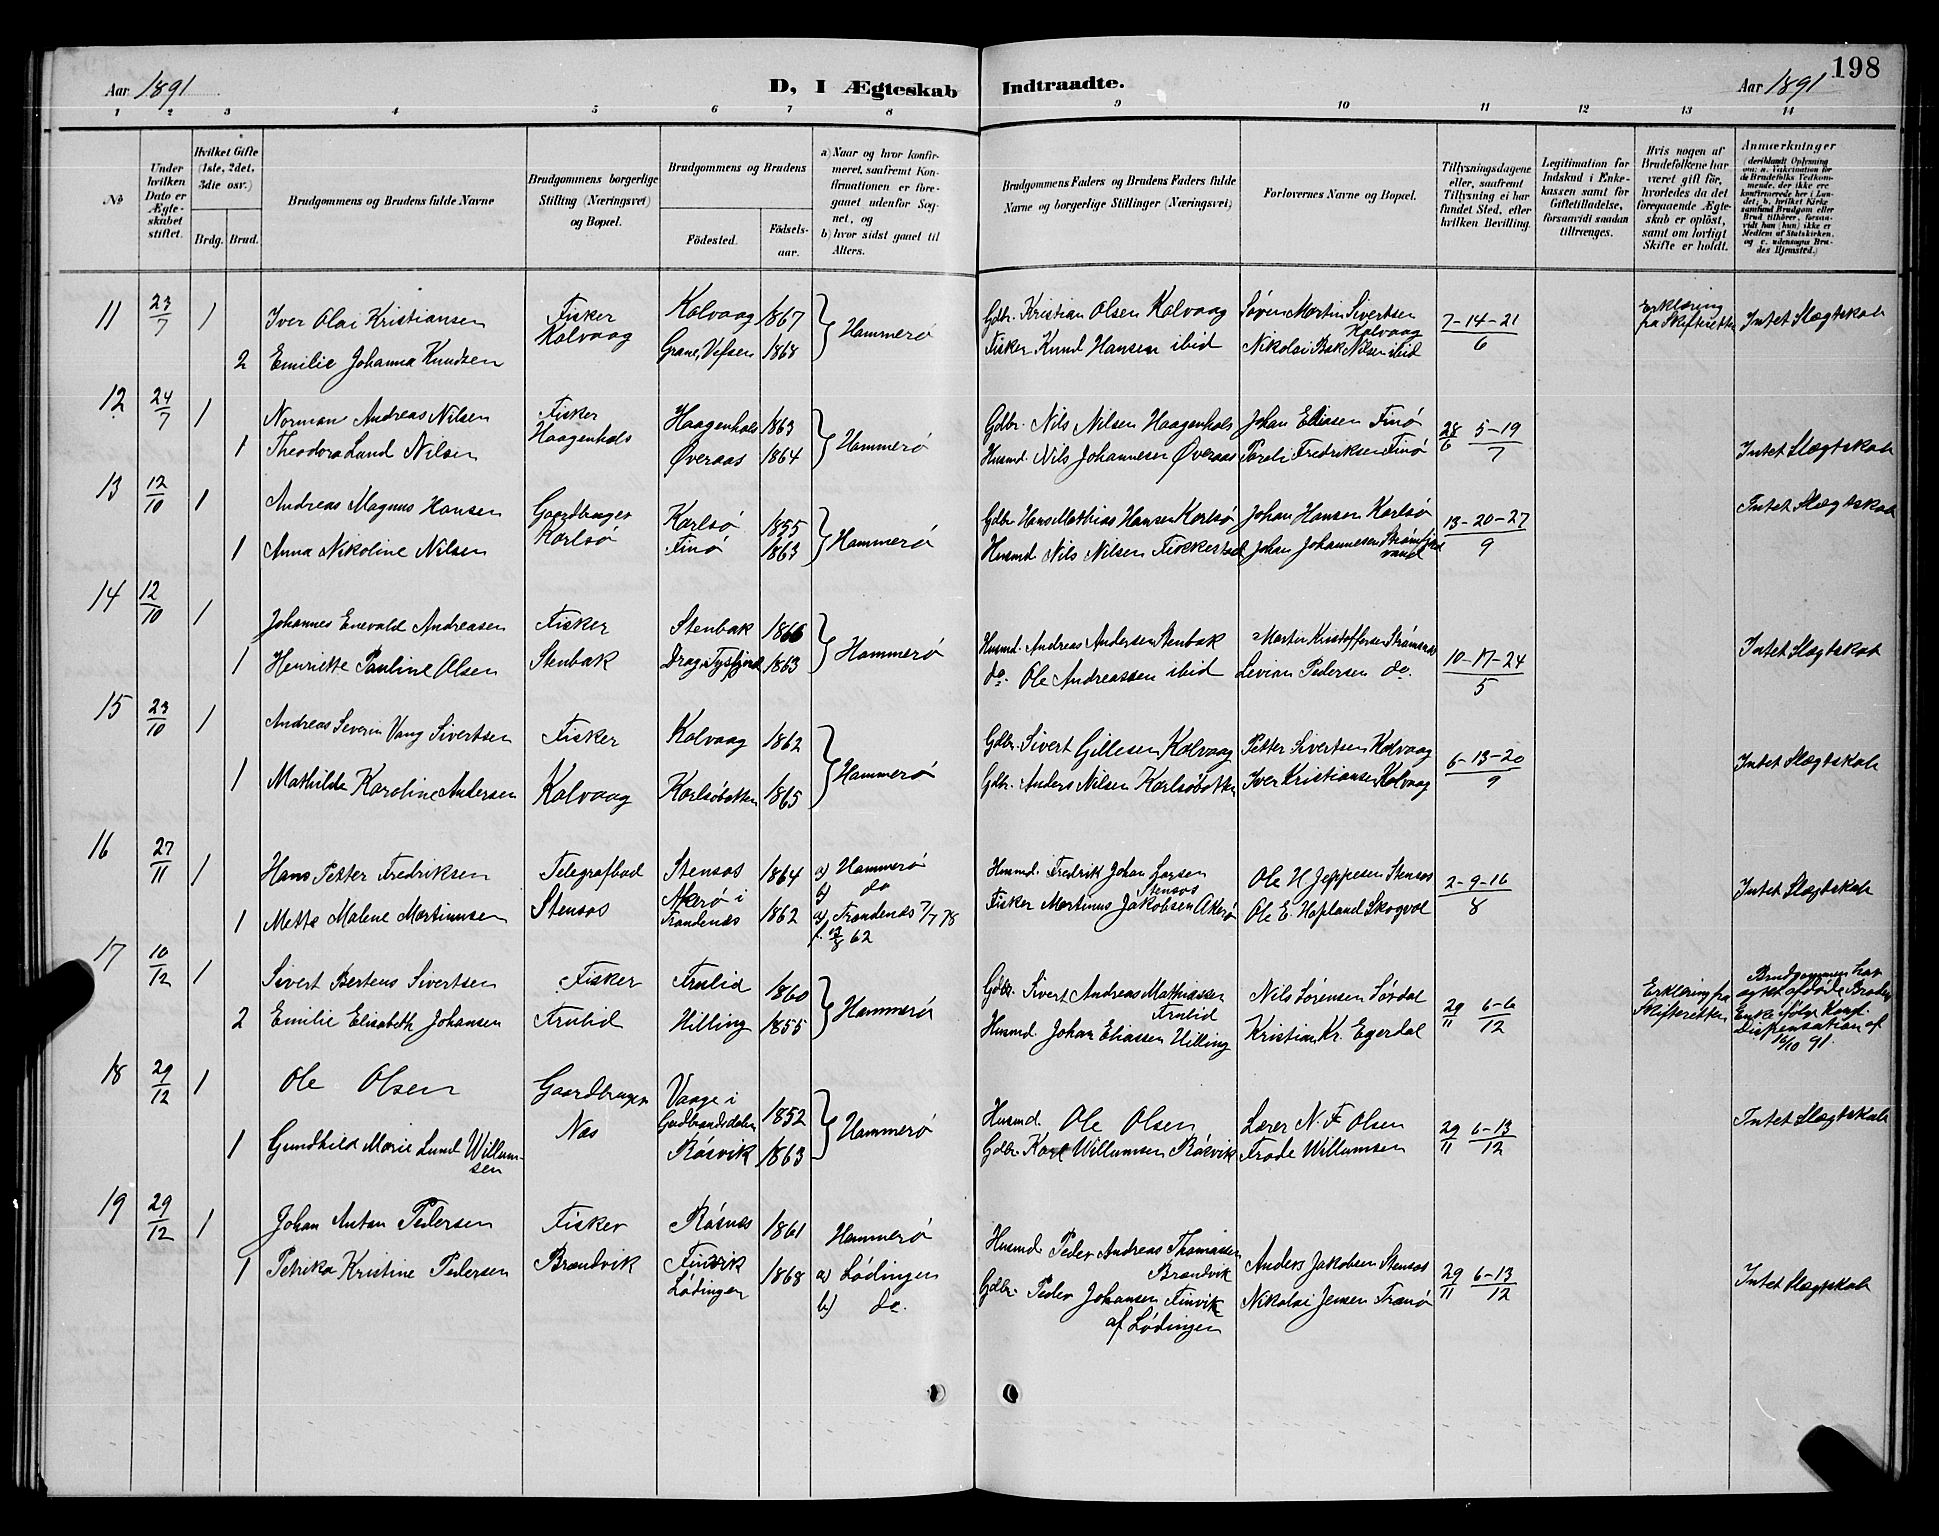 198
Aar 1891 D, I Ægteskab Indtraadte. Aar 1891
1 2 3 4 5 6 7 8 9 10 11 12 13 14
No
Under hvilken Dato er Ægteskabet stiftet.
Hvilket Gifte (1ste, 2det, 3die osv.)
Brdg. Brud.
Brudgommens og Brudens fulde Navne
Brudgommens borgerlige Stilling (Næringsvei) og Bopæl.
Brudgommens og Brudens
Fødested.
Fødselsaar.
a) Naar og hvor konfirmeret, saafremt Konfirmationen er foregaaet udenfor Sognet, og
b) hvor sidst gaaet til Alters.
Brudgommens Faders og Brudens Faders fulde Navne og borgerlige Stillinger (Næringsvei)
Forlovernes Navne og Bopæl.
Tillysningsdagene eller, saafremt Tillysning ei har fundet Sted, efter hvilken Bevilling.
Legitimation for Indskud i Enkekassen samt for Giftetilladelse, forsaavidt saadan tiltrænges.
Hvis nogen af Brudefolkene har været gift før, hvorledes da det foregaaende Ægteskab er opløst, samt om lovligt Skifte er holdt.
Anmærkninger (deriblandt Oplysning om: a. Vakcination for de Brudefolks Vedkommende, der ikke ere konfirmerede her i Landet; b. hvilket Kirkesamfund Brudgom eller Brud tilhører, forsaavidt han (hun) ikke er Medlem af Statskirken, og c. udensogns Brudes Hjemsted.)
11 23/7 1 Iver Olai Kristiansen Fisker Kalvaag 1867 Hammerø Gdbr. Kristian Olsen Kalvaag Søren Martin Sivertsen Kalvaag 7-14-21/6 Erklæring fra Skifteretten Intet Slægtskab
2 Emilie Johanna Knudsen Kalvaag Grane, Vefsen 1868 Fisker Knud Hansen ibid Nikolai Bak Nilsen ibid
12 24/7 1 Norman Andreas Nilsen Fisker Haagenhals 1863 Hammerø Gdbr. Nils Nilsen Haagenhals Johan Eliasen Finø 28/6 5-19/7 Intet Slægtskab
1 Theodora Lund Nilsen Haagenhals Øveraas 1864 Husmd. Nils Johannesen Øveraas Paroli Fredriksen Finø
13 12/10 1 Andreas Magnus Hansen Gaardbruger Karlsø 1855 Hammerø Gdbr Hans Mathias Hansen Karlsø Johan Hansen Karlsø 13-20-27/9 Intet Slægtskab
1 Anna Nikoline Nilsen Karlsø Finø 1863 Husmd Nils Nilsen Johan Johannesen
14 12/10 1 Johannes Enevald Andreasen Fisker Stenbak 1866 Hammerø Husmd. Andreas Andersen Stenbak Martin Kristoffersen Strømsnes 10-17-24/5 Intet Slægtskab
1 Henriette Pauline Olsen Stenbak Drag i Tysfjord 1863 do. Ole Andreassen ibid Levian Pedersen do.
15 23/10 1 Andreas Severin Vang Sivertsen Fisker Kalvaag 1862 Hammerø Gdbr. Sivert Gillesen Kalvaag Petter Sivertsen Kalvaag 6-13-20/9 Intet Slægtskab
1 Mathilde Karoline Andersen Kalvaag Karlsøbotten 1865 Gdbr. Anders Nilsen Karlsøbotten Iver Kristiansen Kalvaag
16 27/11 1 Hans Petter Fredriksen Telegrafbud Stensos 1864 a) Hammerø b) do Husmd. Fredrik Johan Larsen Stensos Ole H Jeppesen Stensos 2-9-16/8 Intet Slægtskab
1 Mette Malene Martinusen Stensos Akerø i Trondenæs 1862 a) Trondenæs 7/7 78 f. 62 Fisker Martinus Jakobsen Akerø Ole E. Hapland Skogvol
17 10/12 1 Sivert Bertens Sivertsen Fisker Frulid 1860 Hammerø Gdbr. Sivert Andreas Mathiassen Frulid Nils Sørensen Sørdal 29/11 6-6/12 Erklæring fra Skifteretten Brudgommen har ægtet afdøde Broders Enke ifølge Kongl. Dispensation af 16/10 91.
2 Emilie Elisabeth Johansen Frulid Hilling 1855 Husmd. Johan Eliassen Hilling Kristian Kr. Egerdal
18 29/12 1 Ole Olsen Gaardbruger Vaage i Gudbrandsdalen 1852 Hammerø Husmd. Ole Olsen Lærer N. F Olsen 29/11 6-13/12 Intet Slægtskab
1 Gundhild Marie Lund Willumsen Næs Røsvik 1863 Gdbr. Karl Willumsen Røsvik Frode Willumsen
19 29/12 1 Johan Anton Pedersen Fisker Røsnæs 1861 Hammerø Husmd. Peder Andreas Thomassen Brandvik Anders Jakobsen Stensos 29/11 6-13/12 Intet Slægtskab
1 Petrikа Kristine Pedersen Brandvik Finvik Lødingen 1868 a) Lødingen b) do. Gdbr. Peder Johansen Finvik af Lødingen Nikolai Jensen Tranø